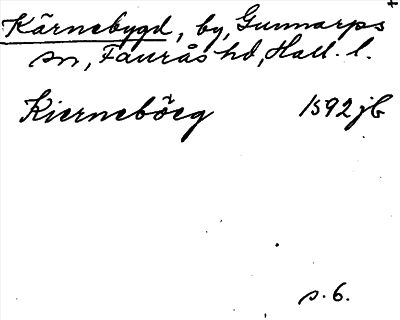 Kärnebygd, by, Gunnarps
sn, Faurås hd, Hall. l.
Kierneböeg 1592 jb
s. 6.